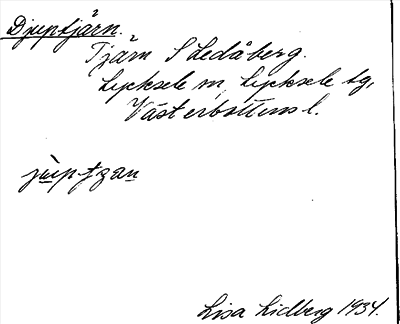 Djuptjärn.
Tjärn S Ledåberg.
Lycksele m, Lycksele tg,
Västerbottens l.
jùptzan
Lisa Lidberg 1934.